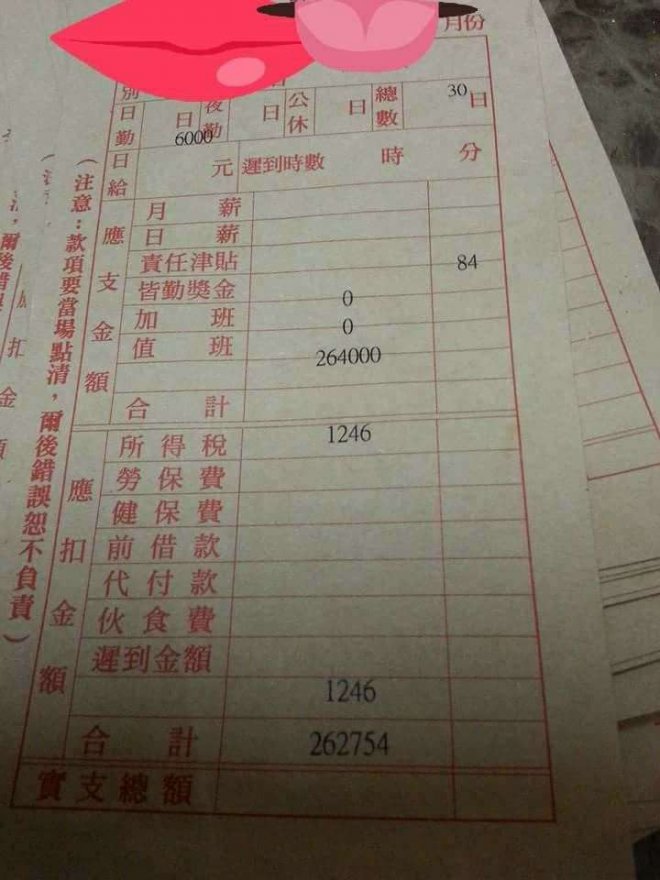 月份
別
日勤 日 夜勤 日 公休 日 總數 30 日
6000
日給 元 遲到時數 時 分
應支金額
月薪
日薪
責任津貼 84
皆勤獎金 0
加班 0
值班 264000
合計
應扣金額
所得稅 1246
勞保費
健保費
前借款
代付款
伙食費
遲到金額
1246
合計 262754
實支總額
(注意:款項要當場點清,爾後錯誤恕不負責)